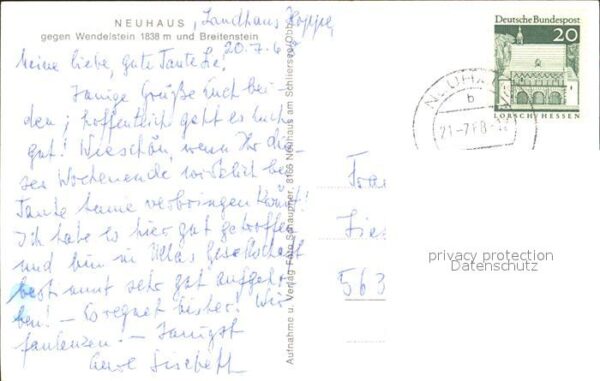 NEUHAUS, Landhaus Hoppe
gegen Wendelstein 1838 m und Breitenstein
20.7.6
Meine liebe, gute Tante
Innige Grüße Euch bei-
den; hoffentlich geht es Euch
gut! Wie schön, wenn Ihr die-
ses Wochenende wirklich bei
Tante verbringen könnt!
Ich habe es hier gut getroffen
und bin in Ullas Gesellschaft
bestimmt sehr gut aufgeho-
ben! - Es regnet bisher! Wir
faulenzen. - Innigst
Eure
Aufnahme u. Verlag Foto Schaupner, 8165 Neuhaus am Schliersee/Obb.
Deutsche Bundespost
20
LORSCH/HESSEN
NEUHA
b
21-7.68
Frau
563
privacy protection
Datenschutz